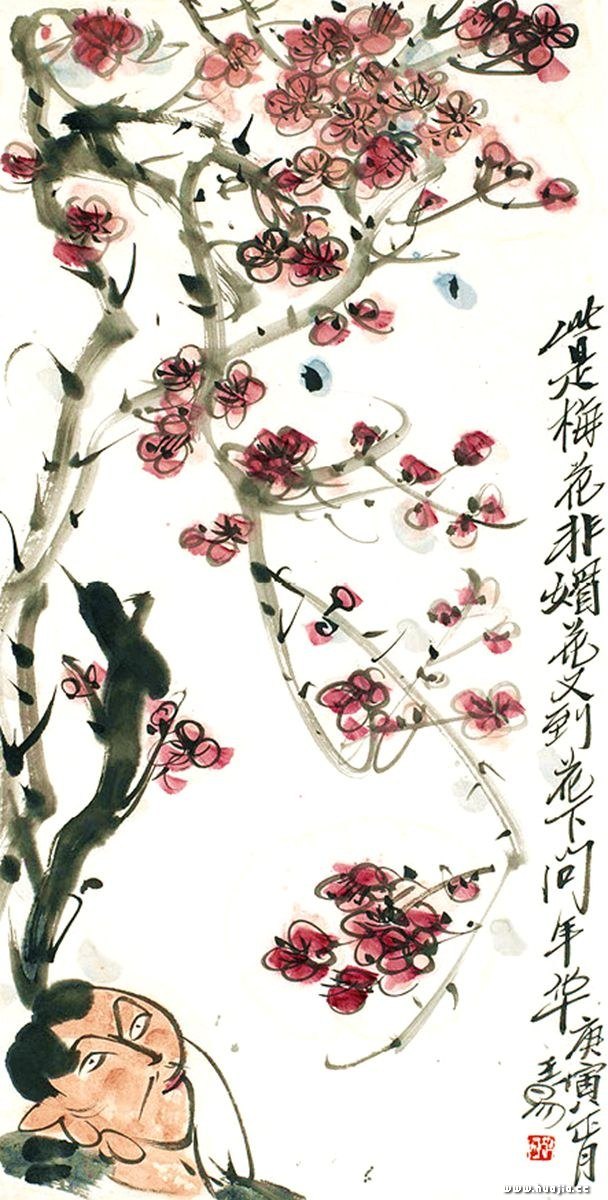 此是梅花非婚花又到花下问年华
庚寅正月
王易
www.huajia.cc